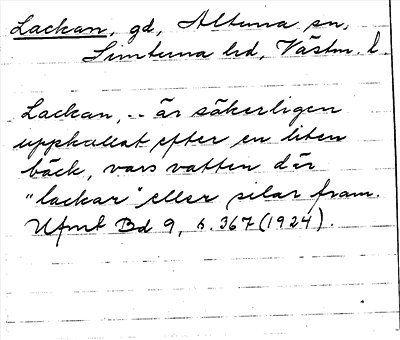 Lackan, gd, Altuna sn,
Simtuna hd, Västm. l.
Lackan, -- är säkerligen
uppkallat efter en liten
bäck, vars vatten där
"lackar" eller silar fram.
Ufmt Bd 9, s. 367 (1924).